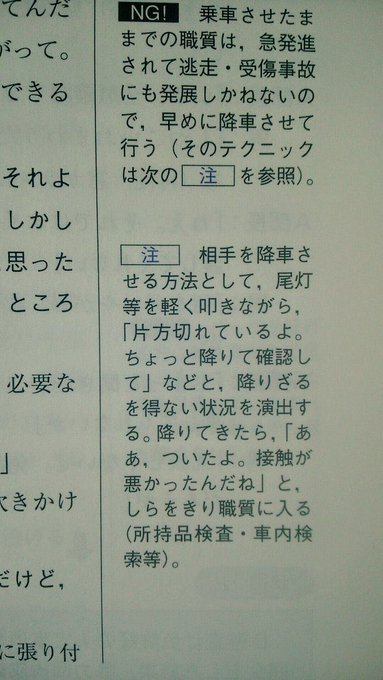 てんだ
がって。
できる
それよ
しかし
思った
ところ
必要な
」
吹きかけ
だけど，
に張り付
NG! 乗車させたま
までの職質は，急発進
されて逃走・受傷事故
にも発展しかねないの
で，早めに降車させて
行う（そのテクニック
は次の 注 を参照）。
注 相手を降車さ
せる方法として，尾灯
等を軽く叩きながら，
「片方切れているよ。
ちょっと降りて確認し
て」などと，降りざる
を得ない状況を演出す
る。降りてきたら，「あ
あ，ついたよ。接触が
悪かったんだね」と，
しらをきり職質に入る
（所持品検査・車内検
索等）。